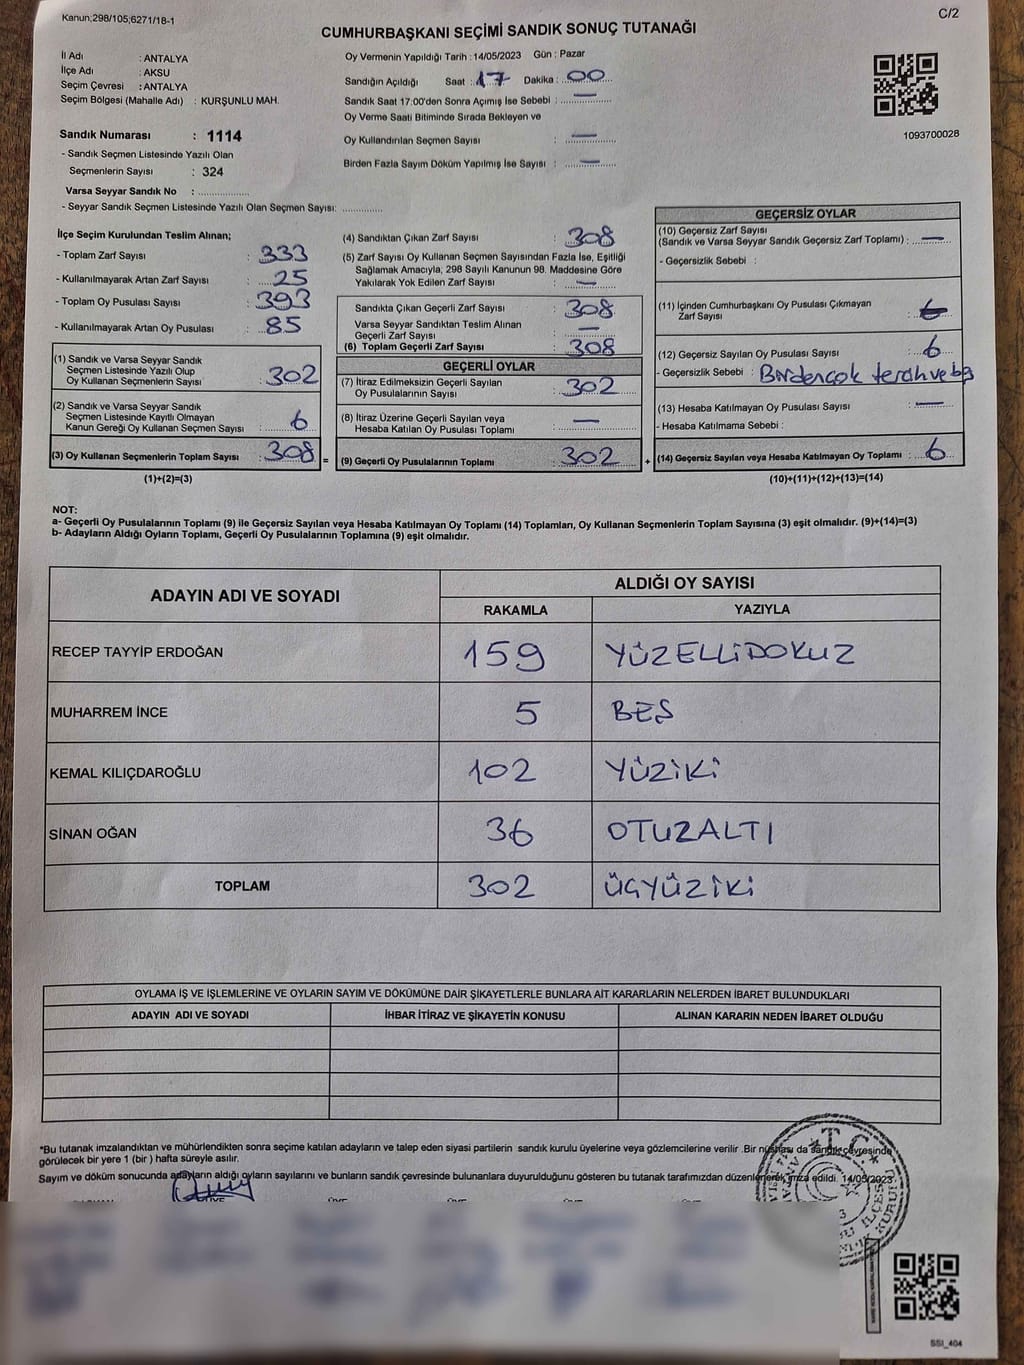 Kanun;298/105;6271/18-1
C/2
CUMHURBAŞKANI SEÇİMİ SANDIK SONUÇ TUTANAĞI
İl Adı : ANTALYA
İlçe Adı : AKSU
Seçim Çevresi : ANTALYA
Seçim Bölgesi (Mahalle Adı) : KURŞUNLU MAH.
Sandık Numarası : 1114
- Sandık Seçmen Listesinde Yazılı Olan
Seçmenlerin Sayısı : 324
Varsa Seyyar Sandık No :
- Seyyar Sandık Seçmen Listesinde Yazılı Olan Seçmen Sayısı:
Oy Vermenin Yapıldığı Tarih : 14/05/2023 Gün : Pazar
Sandığın Açıldığı Saat : 17 Dakika : 00
Sandık Saat 17.00'den Sonra Açımış İse Sebebi : —
Oy Verme Saati Bitiminde Sırada Bekleyen ve
Oy Kullandırılan Seçmen Sayısı : —
Birden Fazla Sayım Döküm Yapılmış İse Sayısı : —
1093700028
İlçe Seçim Kurulundan Teslim Alınan;
- Toplam Zarf Sayısı : 333
- Kullanılmayarak Artan Zarf Sayısı : 25
- Toplam Oy Pusulası Sayısı : 393
- Kullanılmayarak Artan Oy Pusulası : 85
(1) Sandık ve Varsa Seyyar Sandık
Seçmen Listesinde Yazılı Olup
Oy Kullanan Seçmenlerin Sayısı : 302
(2) Sandık ve Varsa Seyyar Sandık
Seçmen Listesinde Kayıtlı Olmayan
Kanun Gereği Oy Kullanan Seçmen Sayısı : 6
(3) Oy Kullanan Seçmenlerin Toplam Sayısı : 308 =
(1)+(2)=(3)
(4) Sandıktan Çıkan Zarf Sayısı : 308
(5) Zarf Sayısı Oy Kullanan Seçmen Sayısından Fazla İse, Eşitliği
Sağlamak Amacıyla; 298 Sayılı Kanunun 98. Maddesine Göre
Yakılarak Yok Edilen Zarf Sayısı : —
Sandıkta Çıkan Geçerli Zarf Sayısı : 308
Varsa Seyyar Sandıktan Teslim Alınan
Geçerli Zarf Sayısı : —
(6) Toplam Geçerli Zarf Sayısı : 308
GEÇERLİ OYLAR
(7) İtiraz Edilmeksizin Geçerli Sayılan
Oy Pusulalarının Sayısı : 302
(8) İtiraz Üzerine Geçerli Sayılan veya
Hesaba Katılan Oy Pusulası Toplamı : —
(9) Geçerli Oy Pusulalarının Toplamı : 302 +
GEÇERSİZ OYLAR
(10) Geçersiz Zarf Sayısı
(Sandık ve Varsa Seyyar Sandık Geçersiz Zarf Toplamı) : —
- Geçersizlik Sebebi :
(11) İçinden Cumhurbaşkanı Oy Pusulası Çıkmayan
Zarf Sayısı :
(12) Geçersiz Sayılan Oy Pusulası Sayısı : 6
- Geçersizlik Sebebi : Birden çok tercih
(13) Hesaba Katılmayan Oy Pusulası Sayısı : —
- Hesaba Katılmama Sebebi :
(14) Geçersiz Sayılan veya Hesaba Katılmayan Oy Toplamı : 6
(10)+(11)+(12)+(13)=(14)
NOT:
a- Geçerli Oy Pusulalarının Toplamı (9) ile Geçersiz Sayılan veya Hesaba Katılmayan Oy Toplamı (14) Toplamları, Oy Kullanan Seçmenlerin Toplam Sayısına (3) eşit olmalıdır. (9)+(14)=(3)
b- Adayların Aldığı Oyların Toplamı, Geçerli Oy Pusulalarının Toplamına (9) eşit olmalıdır.
ADAYIN ADI VE SOYADI
ALDIĞI OY SAYISI
RAKAMLA YAZIYLA
RECEP TAYYİP ERDOĞAN 159 YÜZELLİDOKUZ
MUHARREM İNCE 5 BEŞ
KEMAL KILIÇDAROĞLU 102 YÜZİKİ
SİNAN OĞAN 36 OTUZALTI
TOPLAM 302 ÜÇYÜZİKİ
OYLAMA İŞ VE İŞLEMLERİNE VE OYLARIN SAYIM VE DÖKÜMÜNE DAİR ŞİKAYETLERLE BUNLARA AİT KARARLARIN NELERDEN İBARET BULUNDUKLARI
ADAYIN ADI VE SOYADI İHBAR İTİRAZ VE ŞİKAYETİN KONUSU ALINAN KARARIN NEDEN İBARET OLDUĞU
*Bu tutanak imzalandıktan ve mühürlendikten sonra seçime katılan adayların ve talep eden siyasi partilerin sandık kurulu üyelerine veya gözlemcilerine verilir .Bir nüshası da sandık çevresinde
görülecek bir yere 1 (bir ) hafta süreyle asılır.
Sayım ve döküm sonucunda adayların aldığı oyların sayılarını ve bunların sandık çevresinde bulunanlara duyurulduğunu gösteren bu tutanak tarafımızdan düzenlenerek imza edildi. 14/05/2023
T.C.
SSI_404